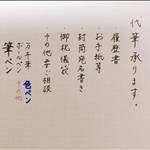 代筆承ります。
・履歴書
・お手紙等
・封筒宛名書き
・御祝儀袋
・その他要ご相談
万年筆
ボールペン
その他
色ペン
筆ペン